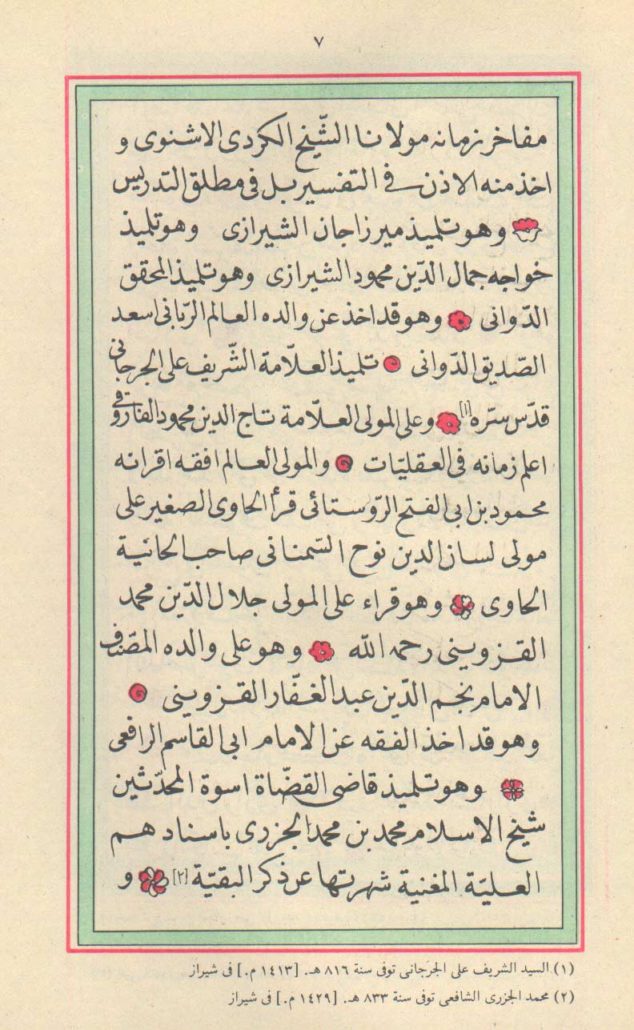 ٧
مفاخر زمانه مولانا الشّيخ الكردى الاشنوى و
اخذ منه الاذن فى التفسير بل فى مطلق التدريس
وهو تلميذ ميرزاجان الشيرازى وهو تلميذ
خواجه جمال الدّين محمود الشيرازى وهو تلميذ المحقق
الدّوانى وهو قد اخذ عن والده العالم الرّبانى اسعد
الصّديق الدّوانى تلميذ العلّامة الشّريف على الجرجانى
قدّس سرّه [١] وعلى المولى العلّامة تاج الدين محمود الفاروقى
اعلم زمانه فى العقليّات والمولى العالم افقه اقرانه
محمود بن ابى الفتح الرّوستائى قرأ الحاوى الصغير على
مولى لسان الدين نوح السّمنانى صاحب الحانية
الحاوى وهو قراء على المولى جلال الدّين محمد
القزوينى رحمه الله وهو على والده المصّنف
الامام نجم الدّين عبد الغفّار القزوينى
وهو قد اخذ الفقه عن الامام ابى القاسم الرافعى
وهو تلميذ قاضى القضّاة اسوة المحدّثين
شيخ الاسلام محمد بن محمد الجزرى باسناد هم
العليّة المغنية شهرتها عن ذكر البقيّة [٢] و
(١) السيد الشريف على الجرجانى توفى سنة ٨١٦ هـ. [١٤١٣ م.] فى شيراز
(٢) محمد الجزرى الشافعى توفى سنة ٨٣٣ هـ. [١٤٢٩ م.] فى شيراز